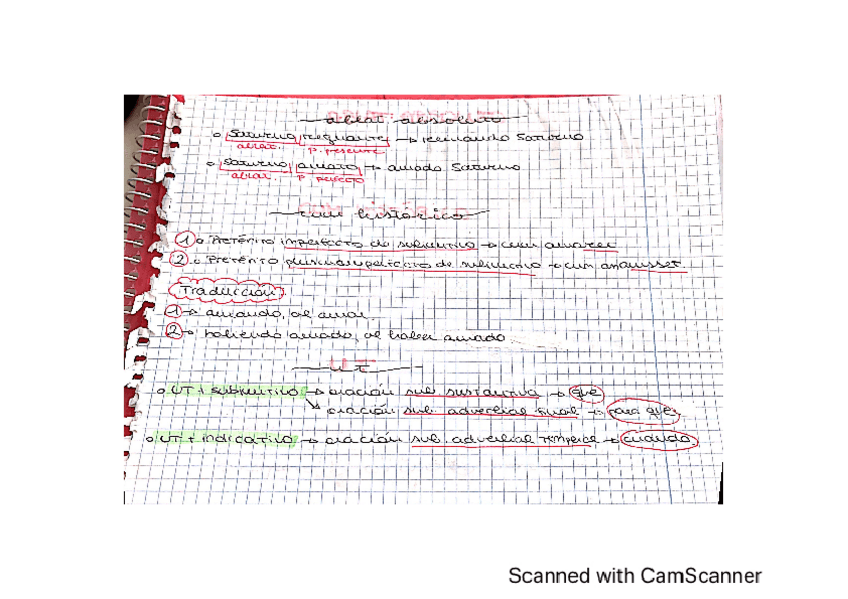 ablat absoluto
o Saturno regnante → reinando Saturno
ablat. p. presente
o Saturno amato → amado Saturno
ablat p perfecto
cum histórico
① o Pretérito imperfecto de subjuntivo → cum amaret
② o Pretérito pluscuamperfecto de subjuntivo → cum amavisset
Traducción
① → amando, al amar
② → habiendo amado, al haber amado
UT
o UT + subjuntivo → oración sub sustantiva → que
→ oración sub. adverbial final → para que
o UT + indicativo → oración sub. adverbial temporal → cuando
Scanned with CamScanner